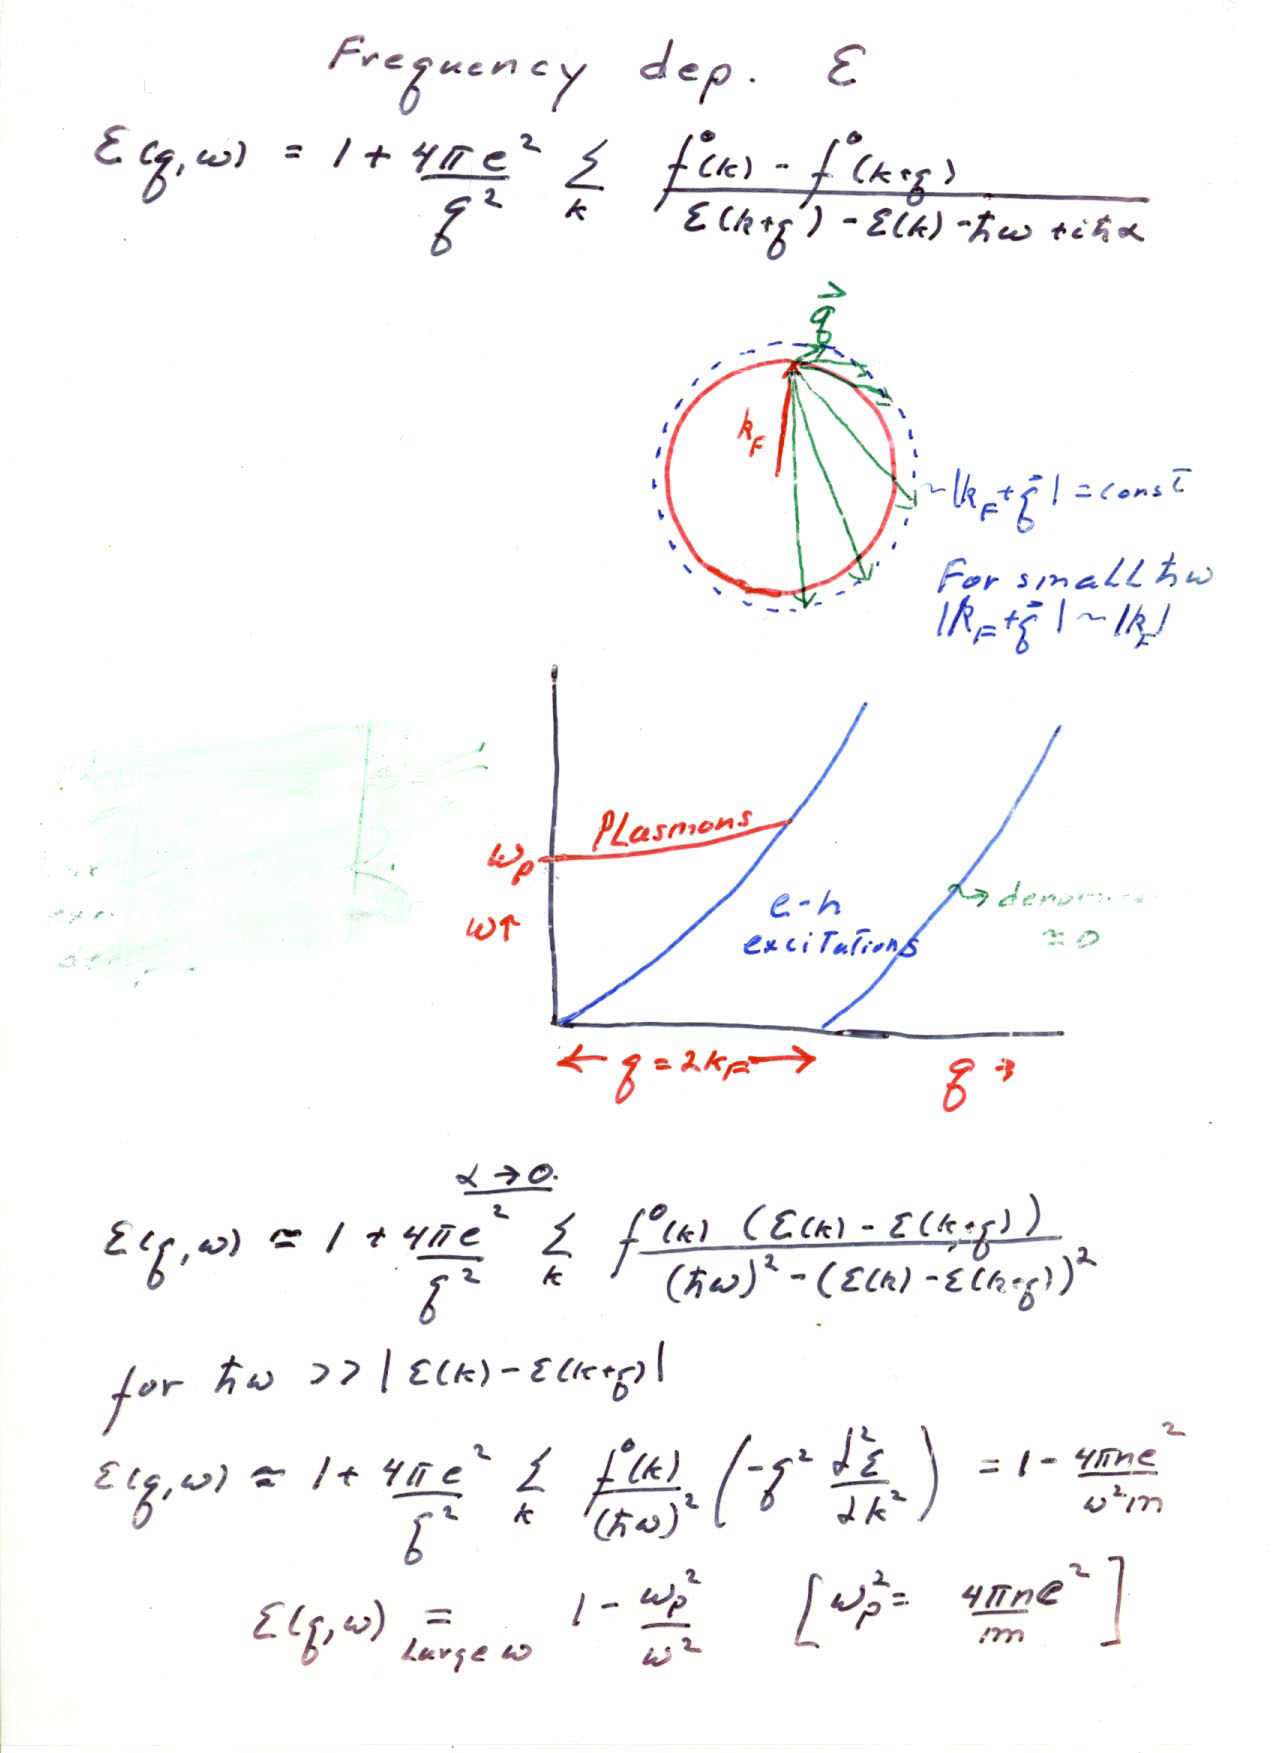 Frequency dep. ε
ε(q,ω) = 1 + 4πe²/q² Σ_k (f⁰(k) - f⁰(k+q)) / (ε(k+q) - ε(k) - ħω + iħα)
q⃗
k_F
~|k_F + q⃗| = const
For small ħω
|k_F + q⃗| ~ |k_F|
PLasmons
ω_p
e-h
excitations
≈ 0
ω↑
← q = 2k_F →
q →
α → 0.
ε(q,ω) ≃ 1 + 4πe²/q² Σ_k f⁰(k) (ε(k) - ε(k+q)) / ((ħω)² - (ε(k) - ε(k+q))²)
for ħω >> |ε(k) - ε(k+q)|
ε(q,ω) ≃ 1 + 4πe²/q² Σ_k f⁰(k)/(ħω)² (-q² d²ε/dk²) = 1 - 4πne²/ω²m
ε(q,ω) = Large ω 1 - ω_p²/ω² [ω_p² = 4πne²/m]